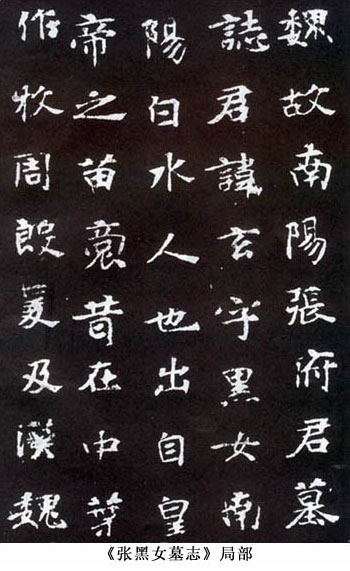 魏故南陽張府君墓
誌君諱玄字黑女南
陽白水人也出自皇
帝之苗裔昔在中葉
作牧周殷爰及漢魏
《张黑女墓志》局部